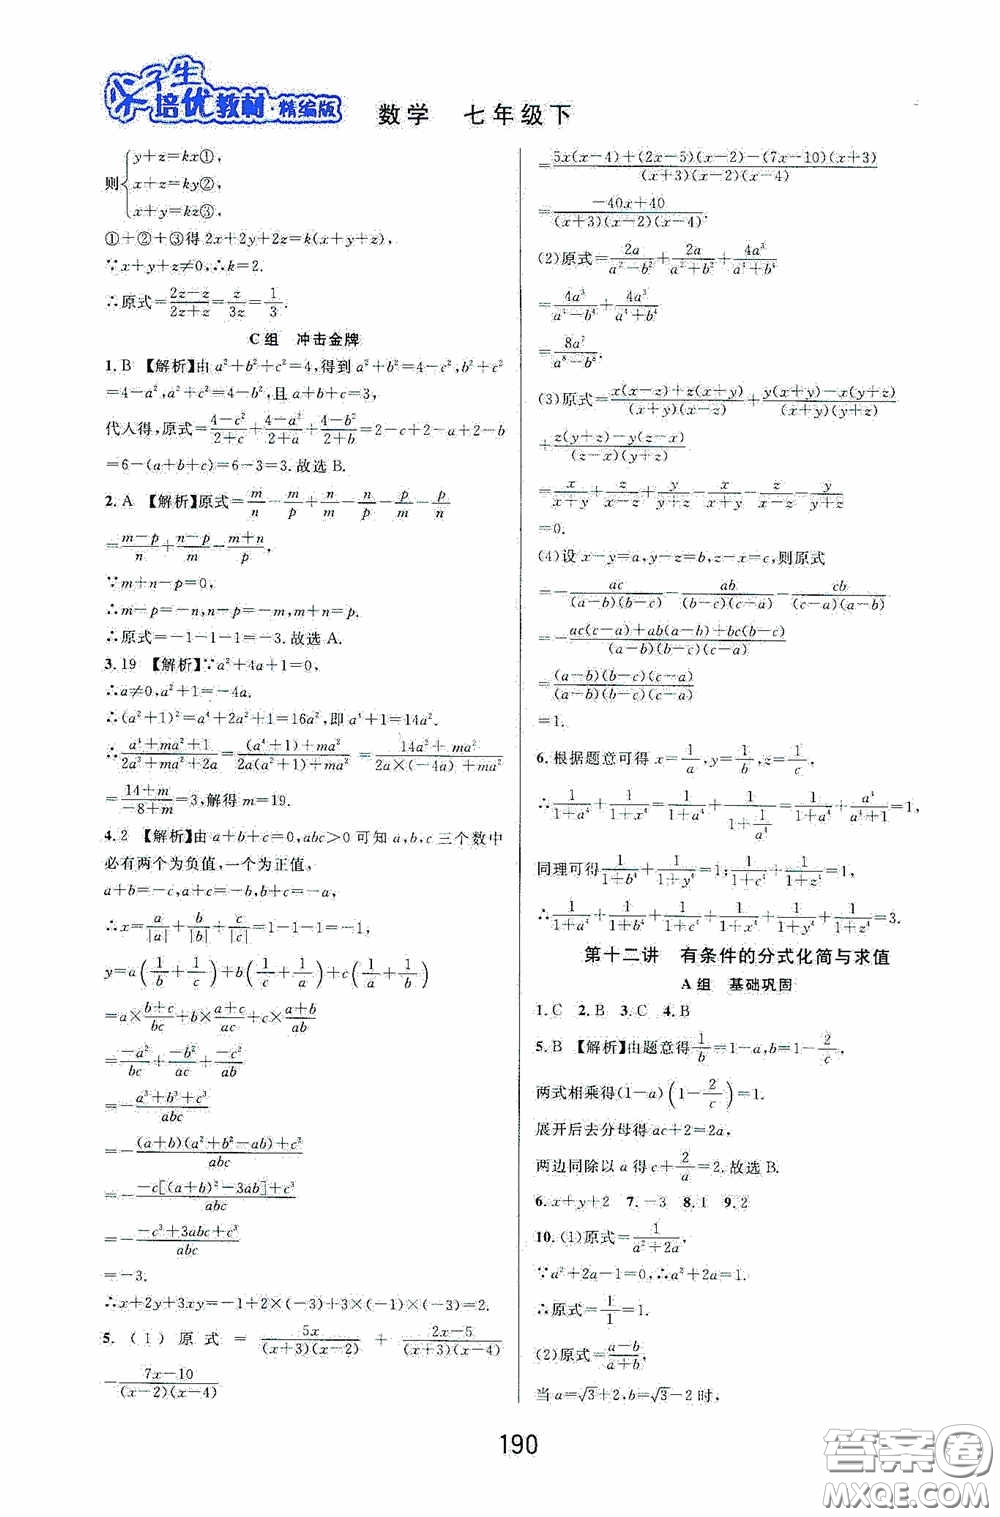 尖子生
培优教材·精编版
数学 七年级下
则{y+z=kx①,
x+z=ky②,
x+y=kz③,
①+②+③得 2x+2y+2z=k(x+y+z),
∵x+y+z≠0,∴k=2.
∴原式=(2z-z)/(2z+z)=z/3z=1/3.
C组 冲击金牌
1. B 【解析】由 a²+b²+c²=4,得到 a²+b²=4-c²,b²+c²
=4-a²,a²+c²=4-b²,且 a+b+c=3,
代入得,原式=(4-c²)/(2+c)+(4-a²)/(2+a)+(4-b²)/(2+b)=2-c+2-a+2-b
=6-(a+b+c)=6-3=3.故选 B.
2. A 【解析】原式=m/n-m/p+n/m-n/p-p/m-p/n
=(m-p)/n+(n-p)/m-(m+n)/p,
∵m+n-p=0,
∴m-p=-n,n-p=-m,m+n=p.
∴原式=-1-1-1=-3.故选 A.
3. 19 【解析】∵a²+4a+1=0,
∴a≠0,a²+1=-4a.
∴(a²+1)²=a⁴+2a²+1=16a²,即 a⁴+1=14a².
∴(a⁴+ma²+1)/(2a³+ma²+2a)=((a⁴+1)+ma²)/(2a(a²+1)+ma²)=(14a²+ma²)/(2a×(-4a)+ma²)
=(14+m)/(-8+m)=3,解得 m=19.
4. 2 【解析】由 a+b+c=0,abc>0 可知 a,b,c 三个数中
必有两个为负值,一个为正值,
a+b=-c,a+c=-b,b+c=-a,
∴x=a/|a|+b/|b|+c/|c|=1-1-1=-1,
y=a(1/b+1/c)+b(1/a+1/c)+c(1/a+1/b)
=a×(b+c)/bc+b×(a+c)/ac+c×(a+b)/ab
=-a²/bc+-b²/ac+-c²/ab
=-(a³+b³+c³)/abc
=-((a+b)(a²+b²-ab)+c³)/abc
=-(-c[(a+b)²-3ab]+c³)/abc
=-(-c³+3abc+c³)/abc
=-3.
∴x+2y+3xy=-1+2×(-3)+3×(-1)×(-3)=2.
5. (1) 原式 = 5x/((x+3)(x-2)) + (2x-5)/((x+3)(x-4))
-(7x-10)/((x-2)(x-4))
=(5x(x-4)+(2x-5)(x-2)-(7x-10)(x+3))/((x+3)(x-2)(x-4))
=(-40x+40)/((x+3)(x-2)(x-4)).
(2)原式=2a/(a²-b²)+2a/(a²+b²)+4a³/(a⁴+b⁴)
=4a³/(a⁴-b⁴)+4a³/(a⁴+b⁴)
=8a⁷/(a⁸-b⁸).
(3)原式=(x(x-z)+z(x+y))/((x+y)(x-z))+(y(x+z)-x(y+z))/((x+y)(y+z))
+(z(y+z)-y(z-x))/((x-z)(y+z))
=x/(x+y)+z/(x-z)+y/(x+y)-x/(x+y)-z/(x-z)-y/(y+z)
=0.
(4)设 x-y=a,y-z=b,z-x=c,则原式
=-ac/((a-b)(b-c))-ab/((b-c)(c-a))-cb/((c-a)(a-b))
=-(ac(c-a)+ab(a-b)+bc(b-c))/((a-b)(b-c)(c-a))
=((a-b)(b-c)(c-a))/((a-b)(b-c)(c-a))
=1.
6. 根据题意可得 x=1/a,y=1/b,z=1/c,
∴1/(1+a⁴)+1/(1+x⁴)=1/(1+a⁴)+1/(1+1/a⁴)=1/(1+a⁴)+a⁴/(1+a⁴)=1,
同理可得1/(1+b⁴)+1/(1+y⁴)=1,1/(1+c⁴)+1/(1+z⁴)=1,
∴1/(1+a⁴)+1/(1+b⁴)+1/(1+c⁴)+1/(1+x⁴)+1/(1+y⁴)+1/(1+z⁴)=3.
第十二讲 有条件的分式化简与求值
A组 基础巩固
1. C 2. B 3. C 4. B
5. B 【解析】由题意得1/b=1-a,b=1-2/c,
两式相乘得(1-a)(1-2/c)=1.
展开后去分母得 ac+2=2a,
两边同除以 a 得 c+2/a=2.故选 B.
6. x+y+2 7. -3 8. 1 9. 2
10. (1)原式=1/(a²+2a),
∵a²+2a-1=0,∴a²+2a=1.
∴原式=1/1=1.
(2)原式=(a-b)/(a+b),
当 a=√3+2,b=√3-2 时,
190
答案圈
MXQE.COM